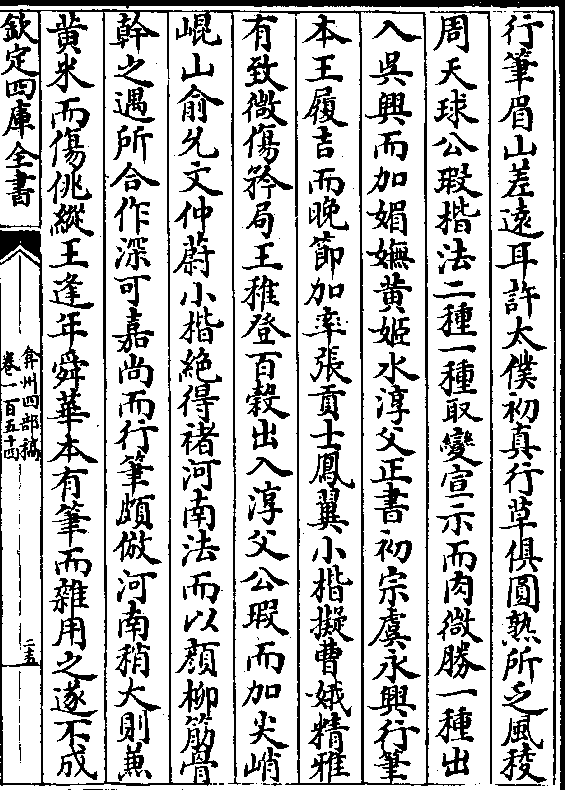 行筆眉山差遠耳許太僕初真行草俱圓熟所乏風稜
周天球公瑕楷法二種一種取變宣示而肉微勝一種出
入吳興而加媚嫵黃姬水淳父正書初宗虞永興行筆
本王履吉而晚節加率張貢士鳳翼小楷擬曹娥精雅
有致微傷矜局王稚登百穀出入淳父公瑕而加尖峭
崐山俞允文仲蔚小楷絶得褚河南法而以顔柳筋骨
幹之遇所合作深可嘉尚而行筆頗倣河南稍大則兼
黃米而傷佻縱王逢年舜華本有筆而雜用之遂不成
欽定四庫全書
弇州四部稿
卷一百五十四
二五